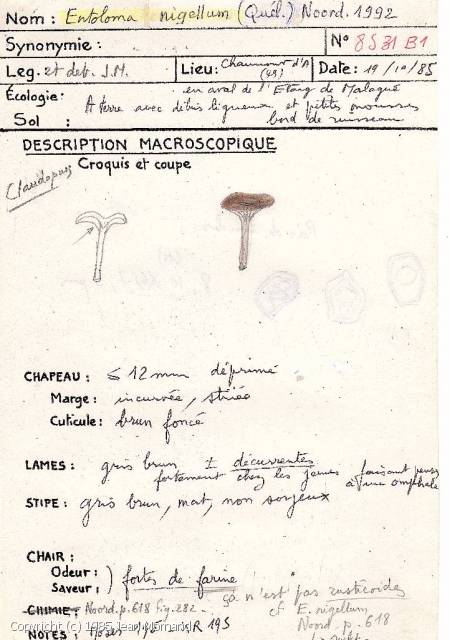 Nom : Entoloma nigellum (Quél.) Noord. 1992
Synonymie : N° 8531 B1
Leg. et det. J.M. Lieu : Chaumont d'A (45) Date : 19/10/85
Écologie : en aval de l'Etang de Malagué
Sol : A terre avec débris ligneux et petites mousses
bord de ruisseau
DESCRIPTION MACROSCOPIQUE
Claudopus Croquis et coupe
CHAPEAU : ≤ 12 mm déprimé
Marge : incurvée, striée
Cuticule : brun foncé
LAMES : gris brun ± décurrentes
fortement chez les jeunes faisant penser
à une omphale
STIPE : gris brun, mat, non soyeux
CHAIR :
Odeur : ) fortes de farine
Saveur : ça n'est pas rusticoides
CHIMIE : Noord. p. 618 fig. 282 cf E. nigellum
Copyright (c) 1985 Jean Mornand Noord. p. 618
NOTES : Moser 195